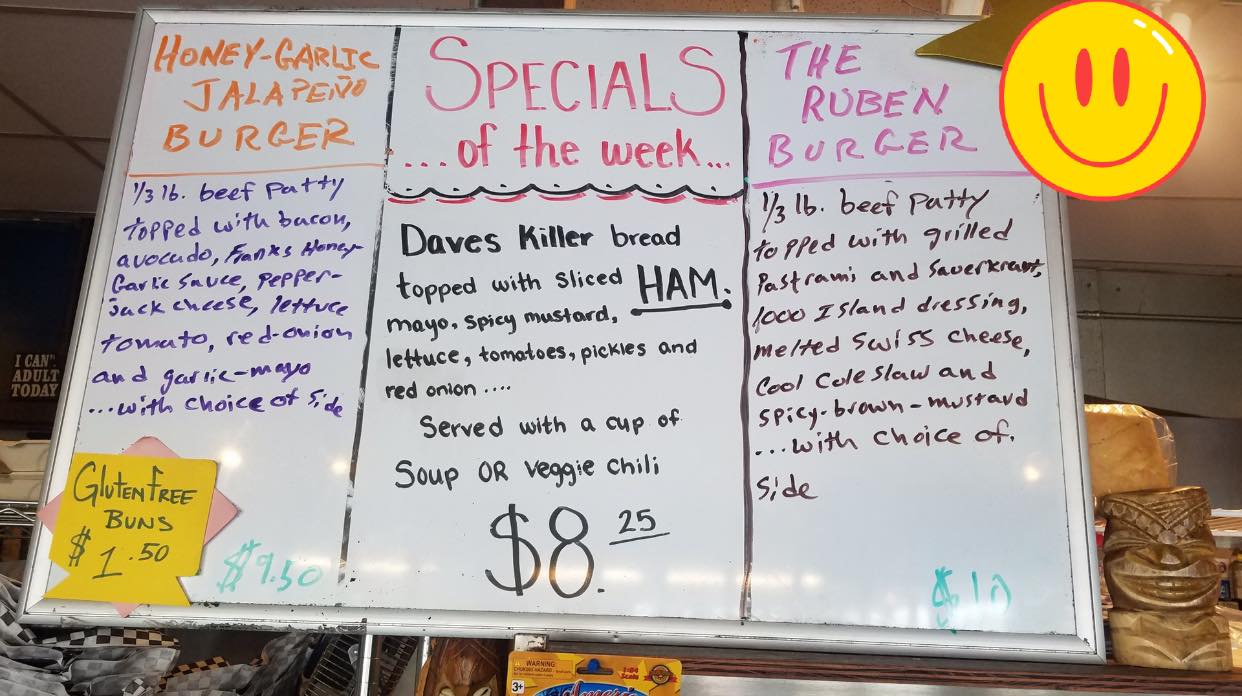 HONEY-GARLIC
JALAPEÑO
BURGER
1/3 lb. beef patty
topped with bacon,
avocado, Franks Honey-
Garlic Sauce, Pepper-
Jack cheese, lettuce
tomato, red-onion
and garlic-mayo
...with choice of side
Gluten Free
BUNS
$1.50
$9.50
SPECIALS
...of the week...
Daves Killer bread
topped with sliced HAM.
mayo, spicy mustard,
lettuce, tomatoes, pickles and
red onion....
Served with a cup of
Soup OR veggie chili
$8.25
THE
RUBEN
BURGER
1/3 lb. beef patty
topped with grilled
Pastrami and Sauerkraut,
1000 Island dressing,
melted Swiss cheese,
Cool Cole Slaw and
spicy-brown-mustard
...with choice of.
side
$10
I CAN'T
ADULT
TODAY
WARNING:
3+
1:64
Scale